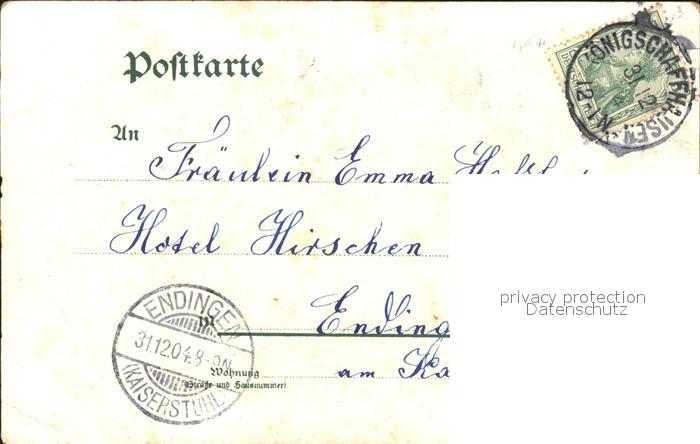 Postkarte
KÖNIGSCHAFFHAUSEN
31 12
12-1N.
An
Fräulein Emma
Hotel Hirschen
privacy protection
Datenschutz
ENDINGEN
31.12.04.8-9N.
(KAISERSTUHL)
in
Ending
Wohnung
(Straße und Hausnummer)
am Ka